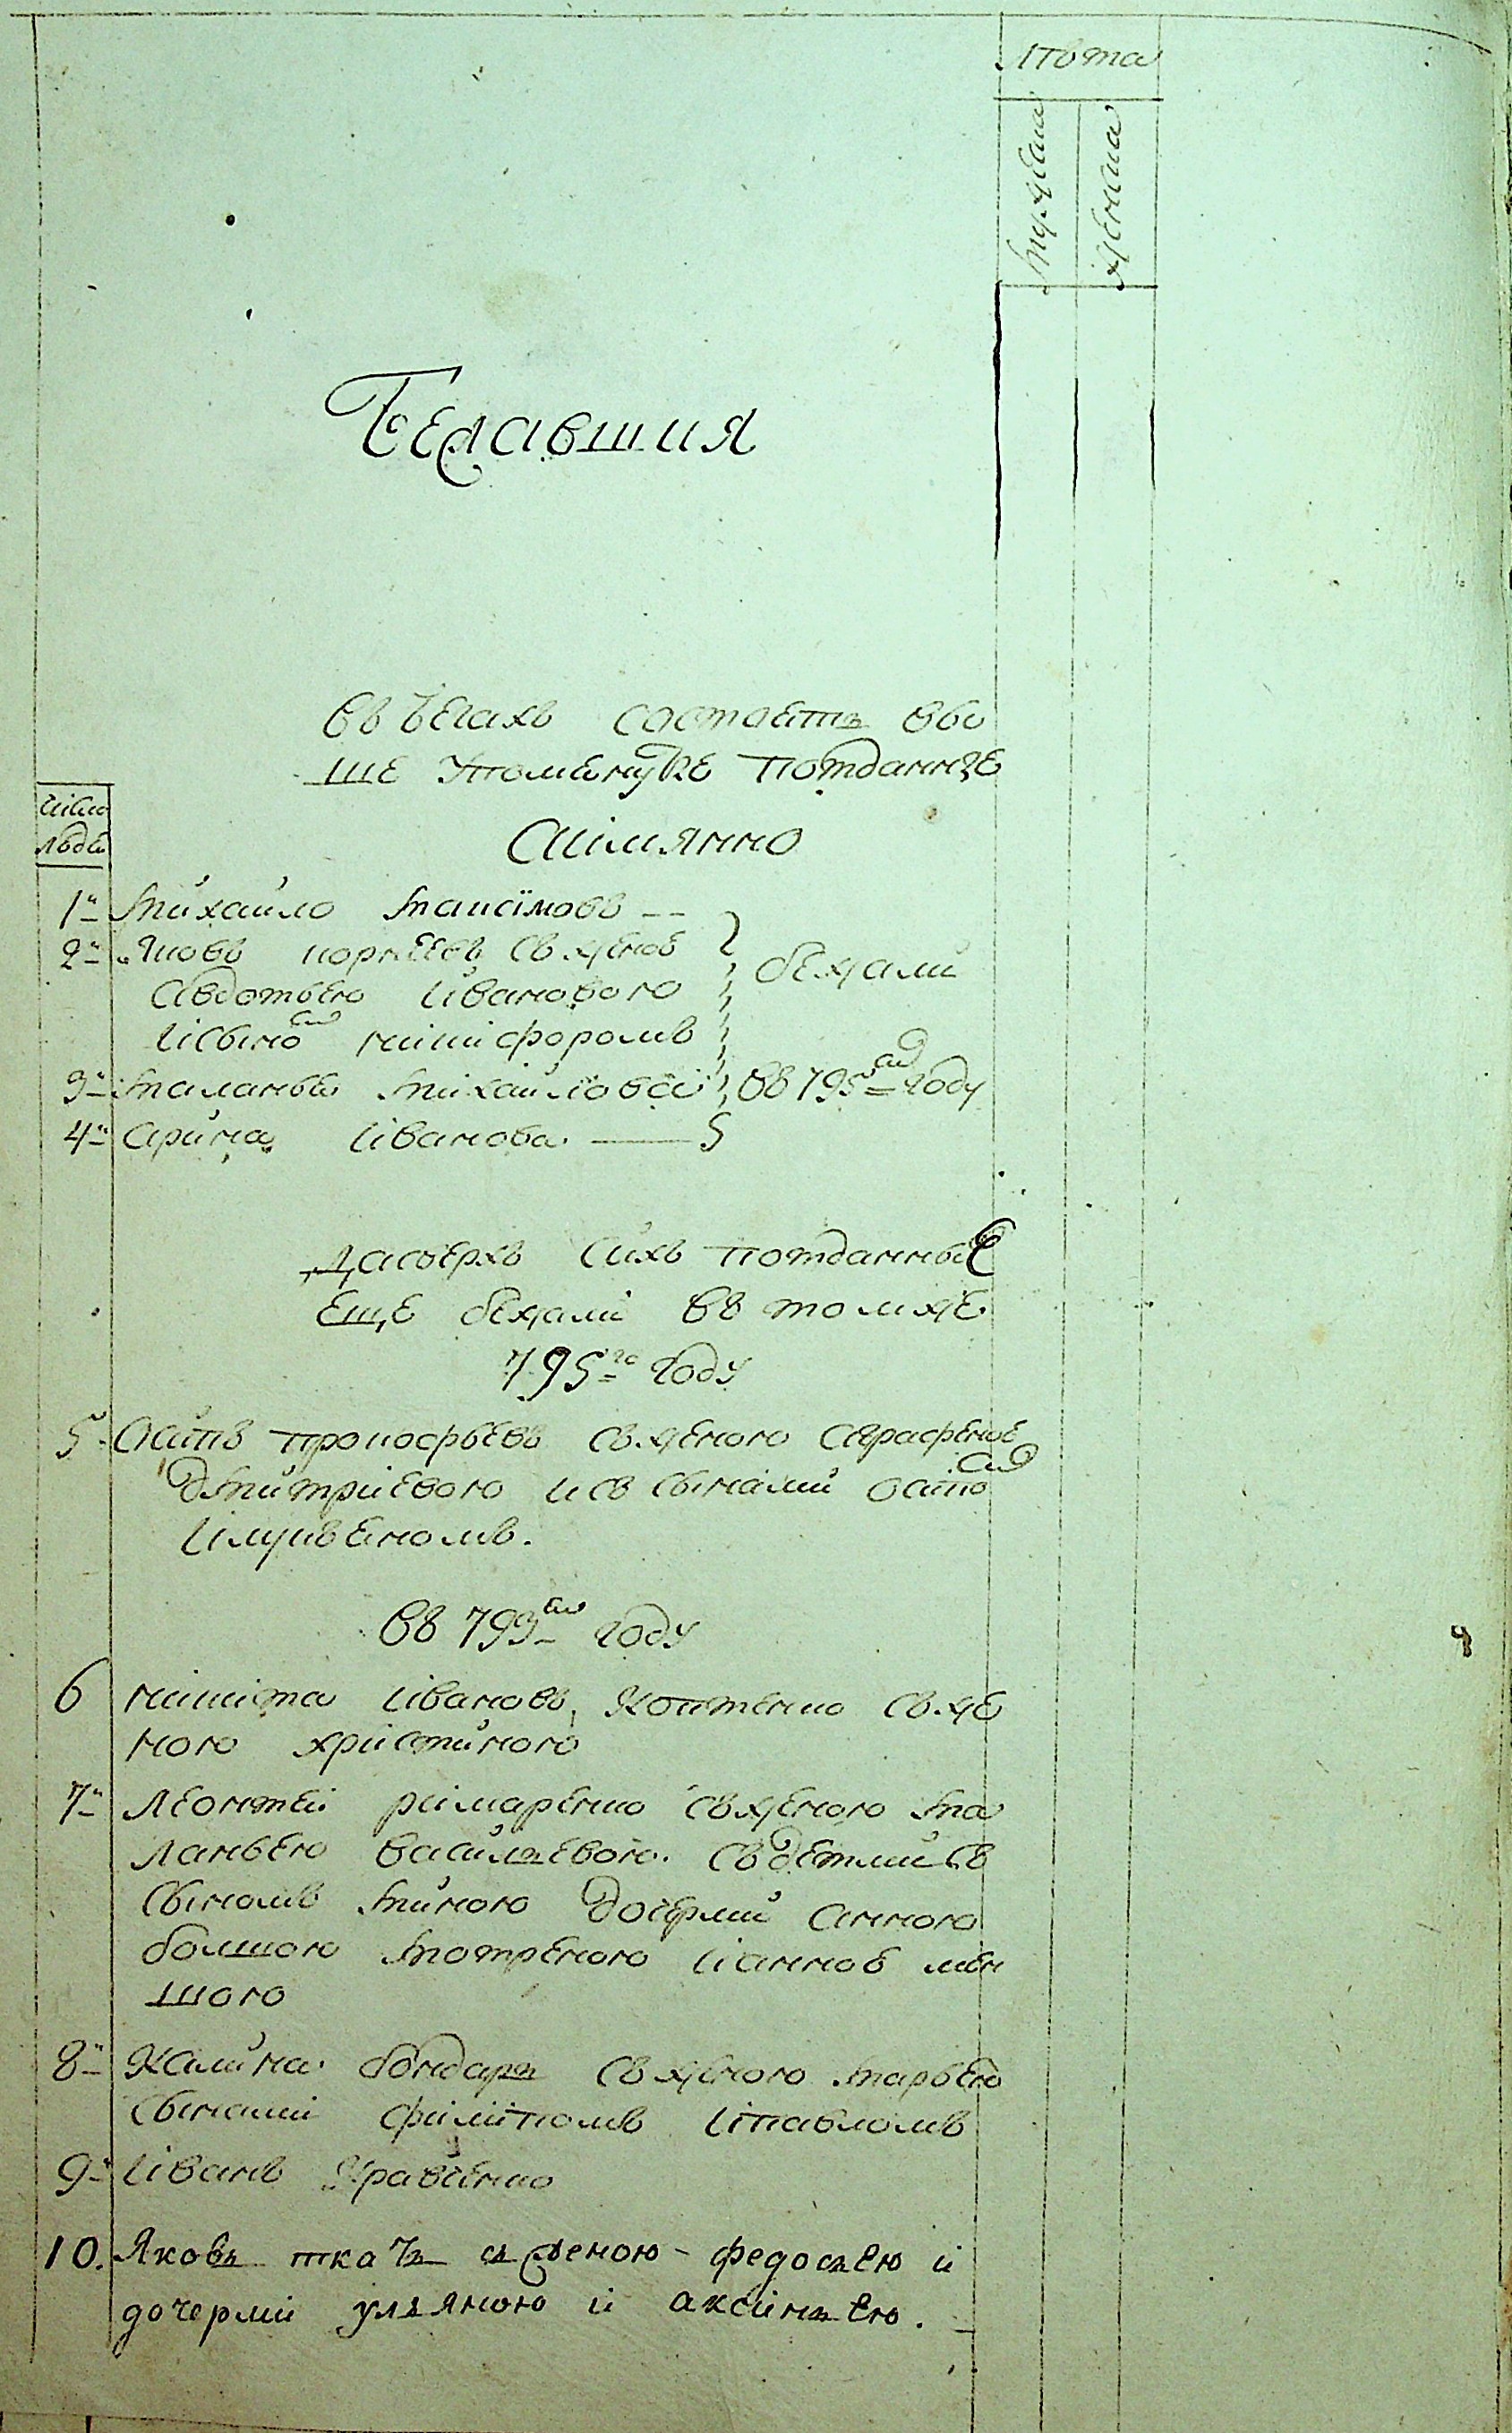 лѣта
мужеска
женска
Бежавшия
въ бегахъ состоятъ вы
ше упомянутые подданные
Аимянно
число
людей
1й Михайло Максимовъ --
2й Яковъ корнеевъ съ женое
авдотьею ивановою
исыномъ никифоромъ
бежали
3й Маланья Михайлова въ 795м году
4й арина иванова
Да сверхъ сихъ подданные
еще бежали въ томже
795го году
5 Осипъ прокофьевъ съ женою аграфеное
дмитриевою и съ сынами осипо
въ 793м году
6 никита ивановъ Коптенко съ же
ною христиною
7й леонтей римаренко съ женою ма
ланьею васильевою съ детми съ
сыномъ миною дочерми анною
болшою мотреною и анное мен
шою
8й Калина бондарь съ женою марьею
сынами филипомъ ипавломъ
9й иванъ Кравченко
10. Яковъ ткачь съ женою федосьею и
дочерми ульяною и аксиньею.